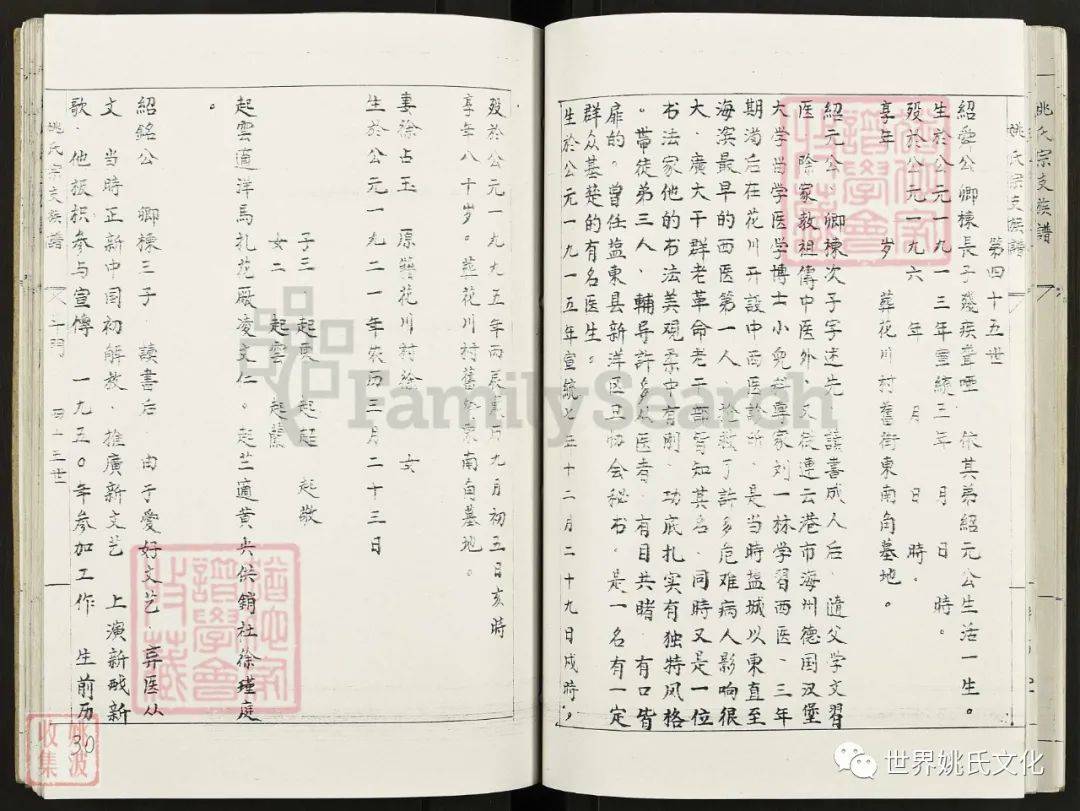 姚氏宗支族譜
姚氏宗支族譜
第四十五世
紹舜公 卿棟長子殘疾聾啞 依其弟紹元公生活一生。
生於公元一九一三年宣統三年 月 日 時。
歿於公元一九六 年 月 日 時。
享年 岁 葬花川村舊街東南角墓地。
紹元公 卿棟次子字述先 讀書成人后 遵父学文習
医 除家教祖傳中医外 又徒連云港市海州德国汉堡
大学留学医学博士小兒科專家刘一林学習西医 三年
期满后在花川开設中西医診所 是当時盐城以東直至
海滨最早的西医第一人 拯救了許多危难病人影响很
大 廣大干群老革命老干部皆知其名 同時又是一位
书法家他的书法美观柔中有刚 功底扎实有独特风格
。带徒弟三人 輔导許多从医者 有目共睹 有口皆
扉的。曾任盐東县新洋区卫协会秘书。是一名有一定
群众基楚的有名医生。
生於公元一九一五年宣統七年十二月二十九日戍時，
歿於公元一九九五年丙辰農历九月初五日亥時
享年八十岁。葬花川村舊街東南角墓地。
妻徐占玉 原籍花川村徐 女
生於公元一九二一年农历三月二十三日
子三 起 起 起敬
女二 起雲 起蘭
起雲適洋馬扎花厰凌文仁。起兰適黄尖供銷社徐瑾庭
。
紹銘公 卿棟三子 讀書后 由于爱好文艺 弃医从
文 当時正新中国初解放 推廣新文艺 上演新戏新
歌 他报积参与宣傳 一九五〇年参加工作 生前历
姚氏宗支族譜
四十三世
30
姚波
收集
FamilySearch
世界姚氏文化